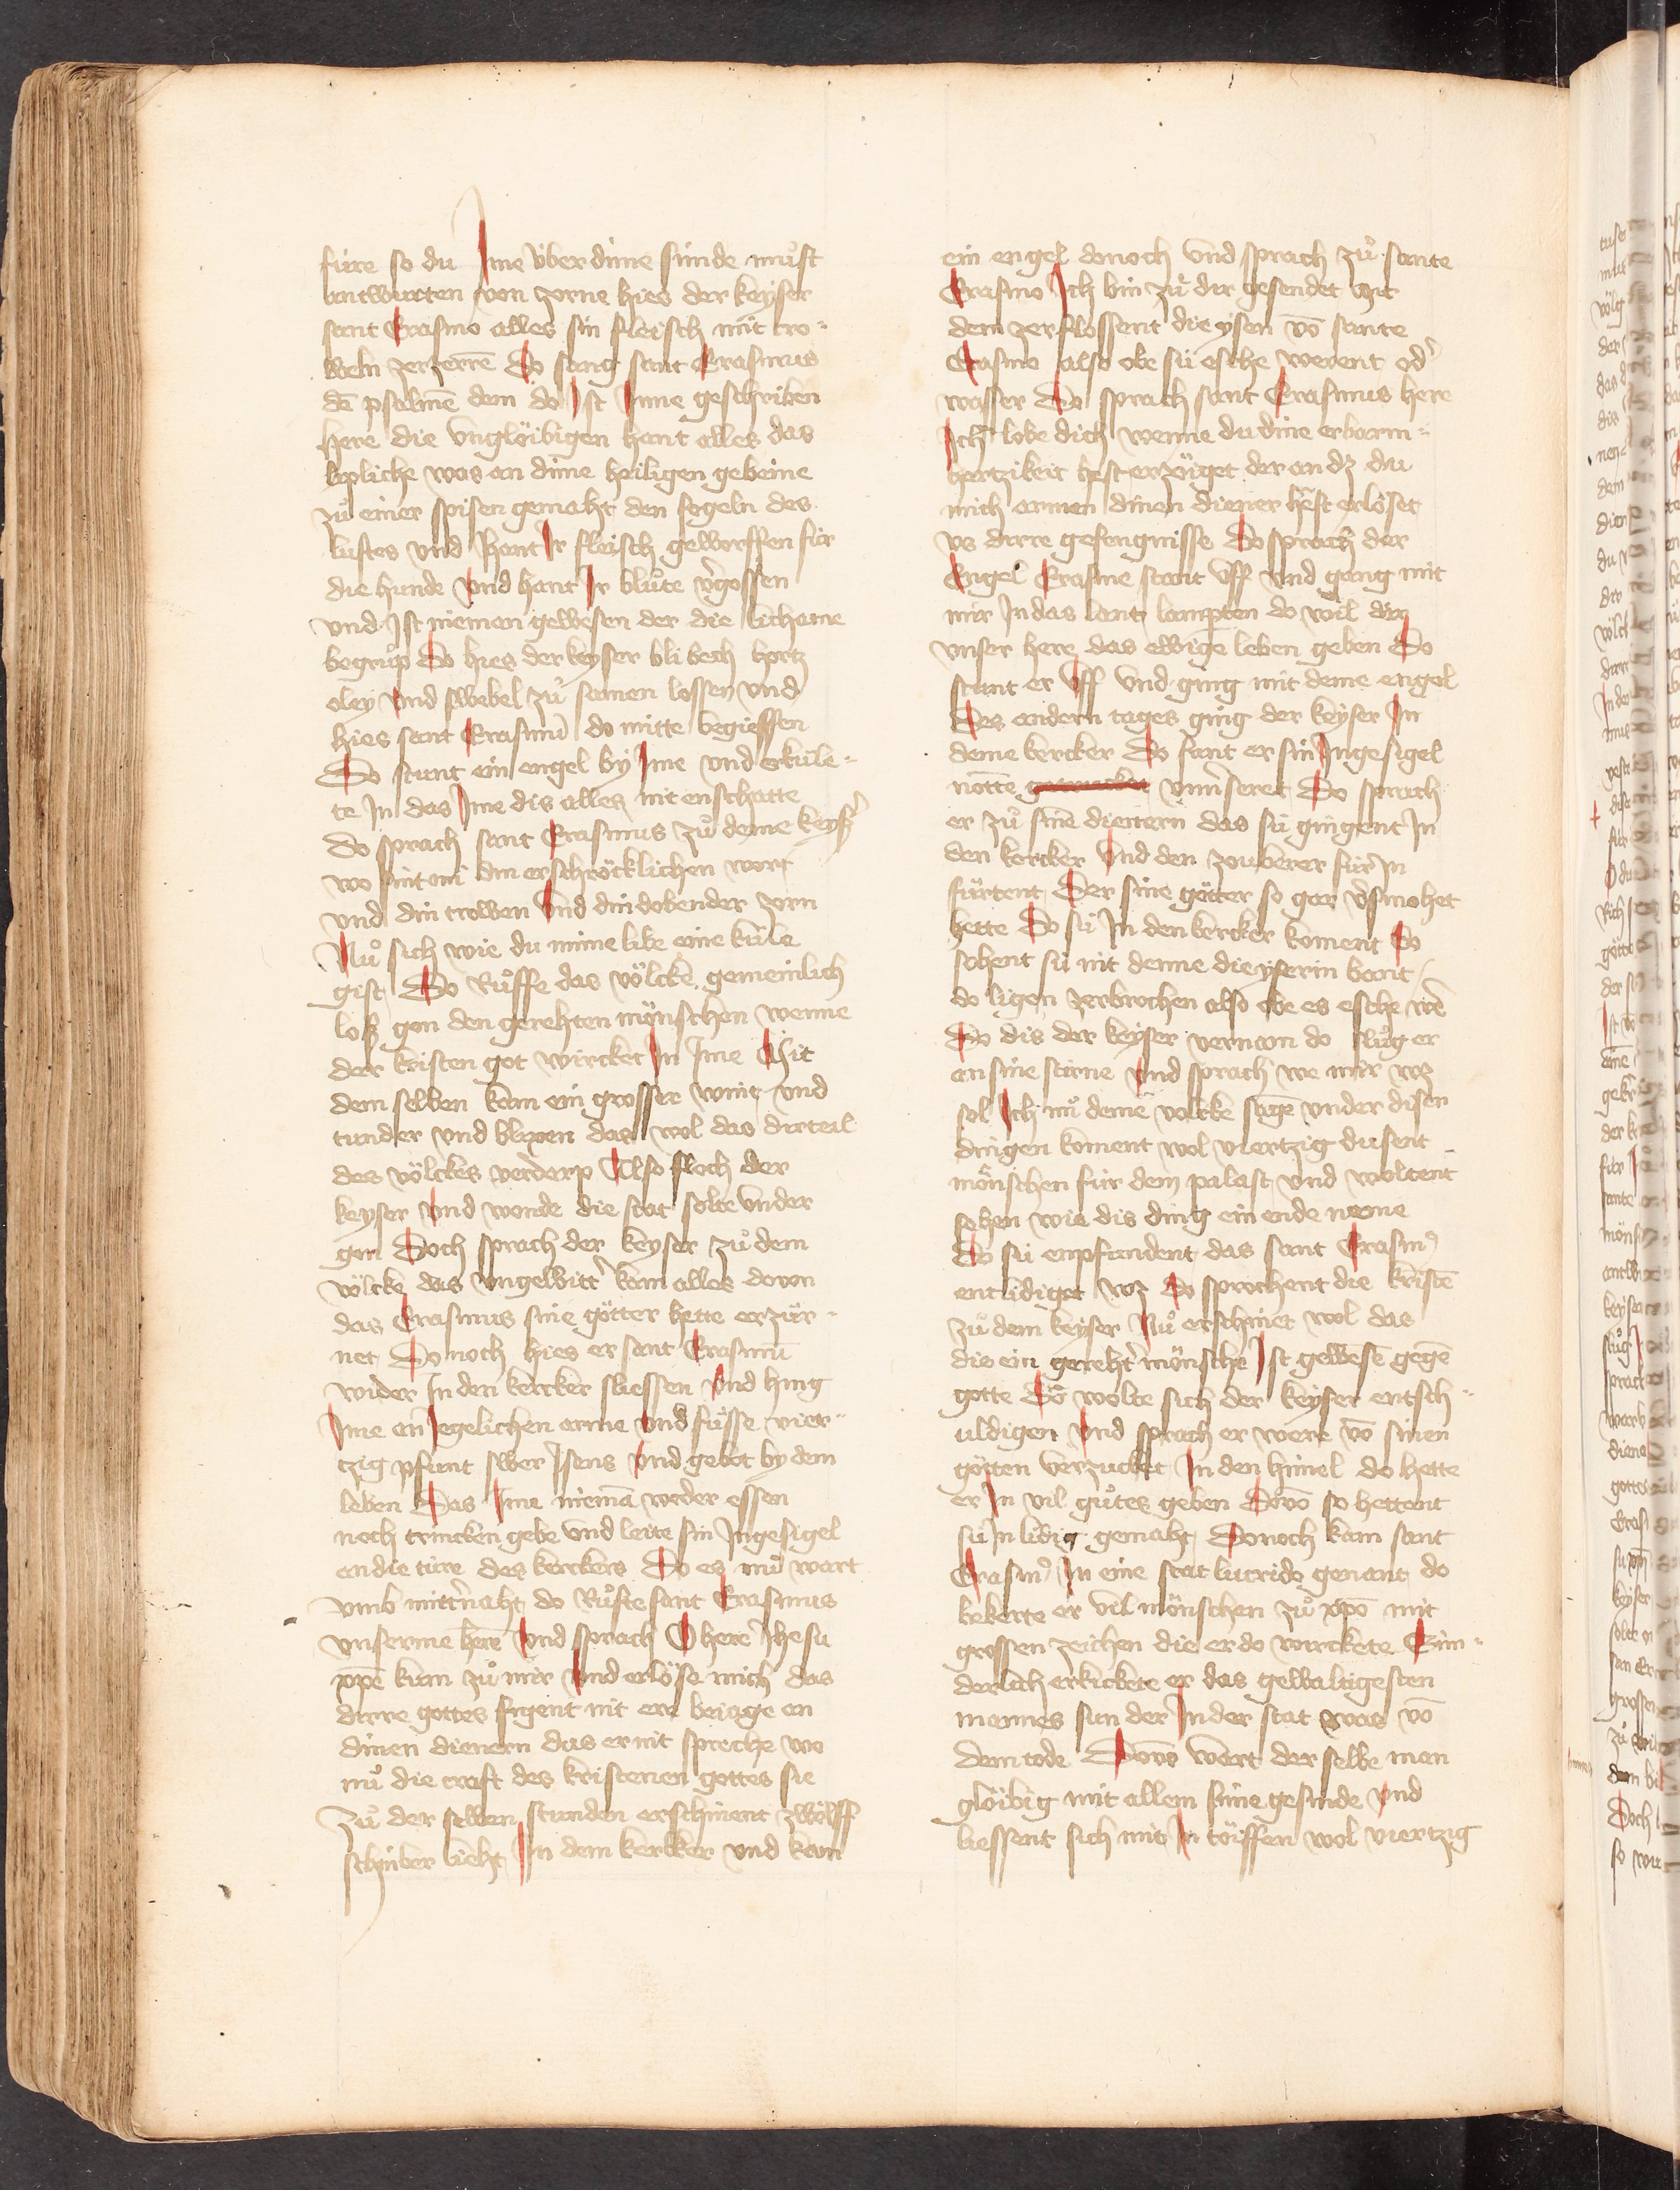 füre so du Ime über dine sünde můst
antwurten von zorne hies der keyser
sant Erasmo alles sin fleisch mit cro-
weln zerzerrē Do sang sant Erasmus
dē psalmē dem do Ist Inne geschriben
here die vnglöibigen hant alles das
lipliche was an dime heiligen gebeine
zů einer spisen gemaht den fogeln des
luftes vnd hant Ir fleisch geworffen für
die hunde vnd hant Ir blůte v'gossen
vnd Ist niemen gewesen der die lichame
begrůp Do hies der keyser bli bech hartz
oley vnd swebel zů samen lossen vnd
hies sant Erasmū do mitte begiessen
Do stunt ein engel by Ime vnd erküle-
te In das Ime dis alles nit enschatte
do sprach sant Erasmus zů deme keys'
wo sint nu din erschröcklichen wort
vnd din trowen vnd din dobender zorn
Nů sich wie du mime libe eine küle
gist Do Růffte das völcke gemeinlich
loß gon den gerehten mönschen wenne
der kristen got wircket In Ime Mit
dem selben kam ein grosser wint vnd
tunder vnd blixen das wol das dirteil
des völckes verderp Also floch der
keyser vnd wonde die stat solte vnder
gon Doch sprach der keyser zů dem
völcke das vngewitt' kam alles dovon
das Erasmus sine götter hette erzür-
net Donoch hies er sant Erasmū
wider In den kercker sliessen vnd hing
Ime an Iegelichen arme vnd füsse vier-
tzig pfunt swer Isens vnd gebot by dem
leben Das Ime niemā weder essen
noch trincken gebe vnd leite sin Ingesigel
an die türe des kerckers Do es nů wart
vmb mittnaht do Růfte sant Erasmus
vnserme here vnd sprach O here Ihesu
xpē kum zů mir vnd erlöse mich das
dirre gottes figent nit ere beiage an
dinen dienern das er nit spreche wo
nů die craft des kristenen gottes sie
Zů der selben stunden erschinent zwölff
schinber lieht In dem kercker vnd kam
ein engel donoch vnd sprach zů sante
Erasmo Ich bin zů dir gesendet mit
dem zerflossent die ysen vō sante
Erasmo also obe sü esche werent od'
wasser Do sprach sant Erasmus here
Ich lobe dich wenne du dine erbarm-
hertzikeit hest erzöiget der an dz du
mich armen dinen diener hest erlöset
vs dirre gefengnisse Do sprach der
Engel Erasme stant vff vnd gang mit
mir In das lant lampten do wil dir
vnser here das ewige leben geben Do
stunt er vff vnd ging mit deme engel
Des andern tages ging der keyser In
deme kercker Do fant er sin Ingesigel
nötte vnu'seret Do sprach
er zů sinē dienern das sü gingent In
den kercker vnd den zouberer für In
fürtent Der sine götter so gar v'smohet
hette Do sü In den kercker koment Do
sohent sü nit denne die yserin bant
do ligen zerbrochen also obe es esche w'e
Do dis der keyser vernam do slůg er
an sine stirne vnd sprach we mir wz
sol Ich nů deme volcke sagē vnder disen
dingen koment wol viertzig dusent
mönschen für dem palast vnd woltent
sehen wie dis ding ein ende neme
Do sü empfundent das sant Erasm'
entlidiget wz Do sprochent die kristē
zů dem keyser Nů erschinet wol das
dis ein gereht' mönsche Ist gewesē gegē
gotte Do wolte sich der keyser entsch-
uldigen vnd sprach er were vō sinen
götten verzucket In den himel do hette
er In vil gůtes geben Dovō so hettent
sü In lidig gemaht Donoch kam sant
Erasm' In eine stat lucrido genant do
bekerte er vil mönschen zů xpō mit
grossen zeichen die er do wurckete Sun-
derlich erkickete er das gewaltigesten
mannes sun der In der stat was vō
dem tode Dovō wart der selbe man
glöibig mit allem sime gesinde vnd
liessent sich mit In töiffen wol viertzig